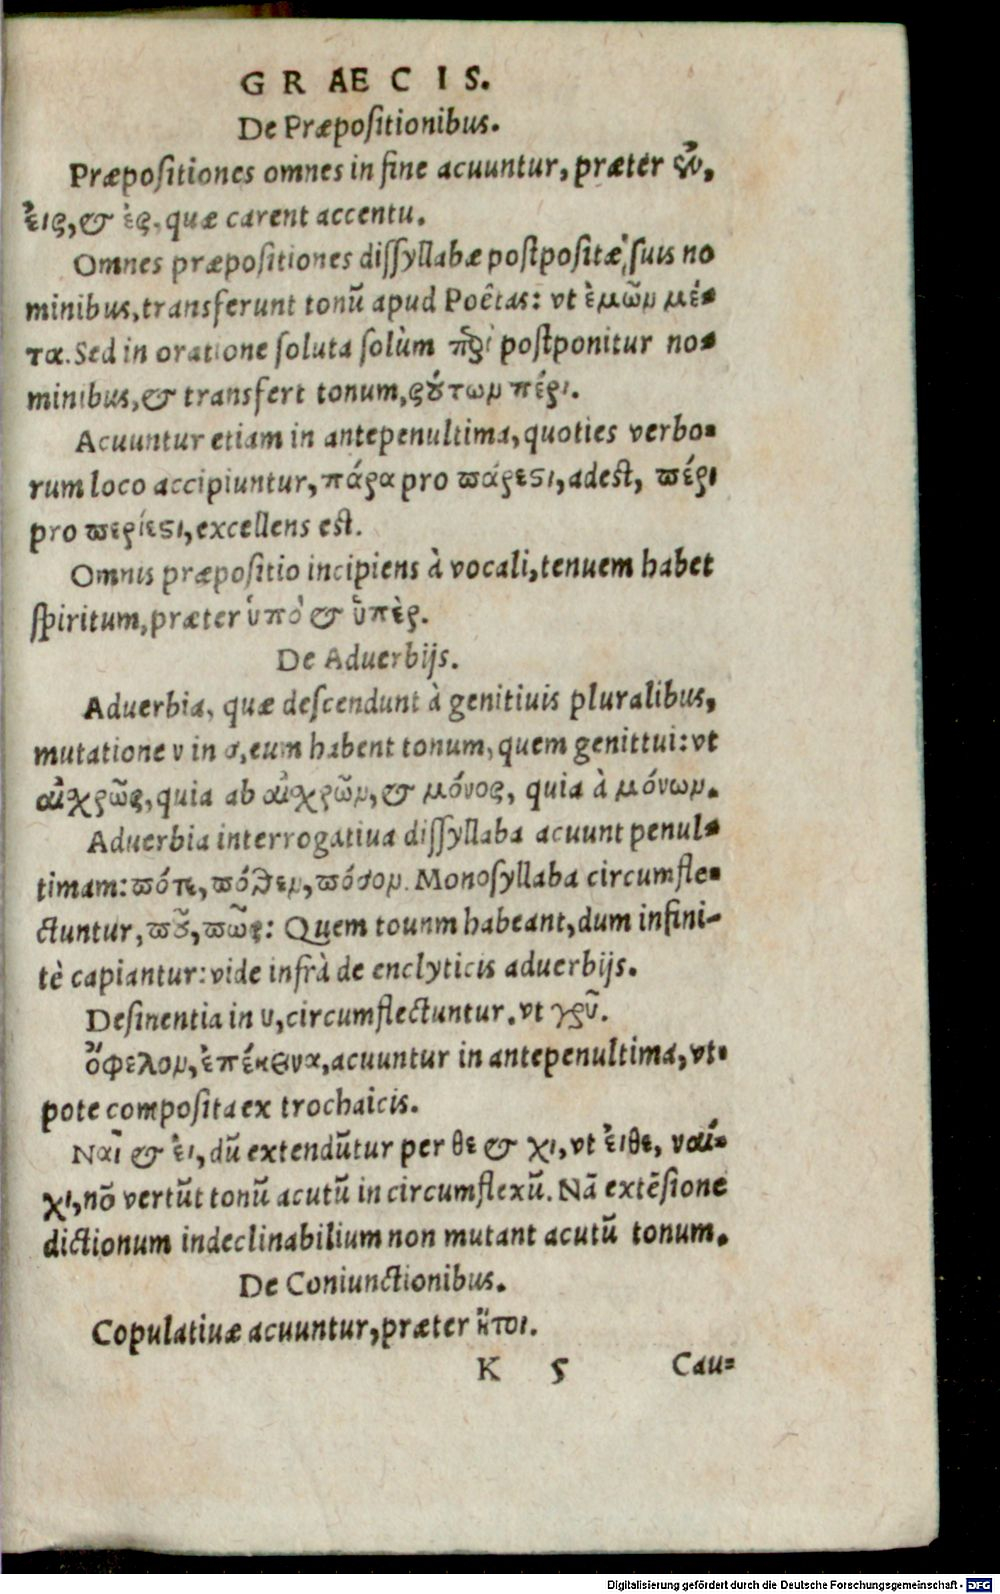 GRAECIS.
De Præpositionibus.
Præpositiones omnes in fine acuuntur, præter ἐν,
ἐις, & ἐς, quæ carent accentu.
Omnes præpositiones dissyllabæ postpositæ, suis no
minibus, transferunt tonũ apud Poêtas: vt ἐμῶν μέ-
τα. Sed in oratione soluta solùm περὶ postponitur no-
minibus, & transfert tonum, ςούτων πέρι.
Acuuntur etiam in antepenultima, quoties verbo-
rum loco accipiuntur, πάρα pro πάρεστι, adest, πέρι
pro περίεστι, excellens est.
Omnis præpositio incipiens à vocali, tenuem habet
spiritum, præter ὑπὸ & ὑπὲρ.
De Aduerbijs.
Aduerbia, quæ descendunt à genitiuis pluralibus,
mutatione ν in σ, eum habent tonum, quem genittui: vt
αἰχρῶς, quia ab αἰχρῶν, & μόνος, quia à μόνων.
Aduerbia interrogatiua dissyllaba acuunt penul-
timam: πότε, πόθεν, πόσον. Monosyllaba circumfle-
ctuntur, ποῦ, πῶς: Quem tounm habeant, dum infini-
tè capiantur: vide infrà de enclyticis aduerbijs.
Desinentia in υ, circumflectuntur. vt γρῦ.
ὄφελον, ἐπέκεινα, acuuntur in antepenultima, vt-
pote composita ex trochaicis.
Ναὶ & ἐι, dũ extendũtur per θε & χι, vt ἐιθε, ναί-
χι, nõ vertũt tonũ acutũ in circumflexũ. Nã extẽsione
dictionum indeclinabilium non mutant acutũ tonum.
De Coniunctionibus.
Copulatiuæ acuuntur, præter ἤτοι.
K 5 Cau-
Digitalisierung gefördert durch die Deutsche Forschungsgemeinschaft - DFG